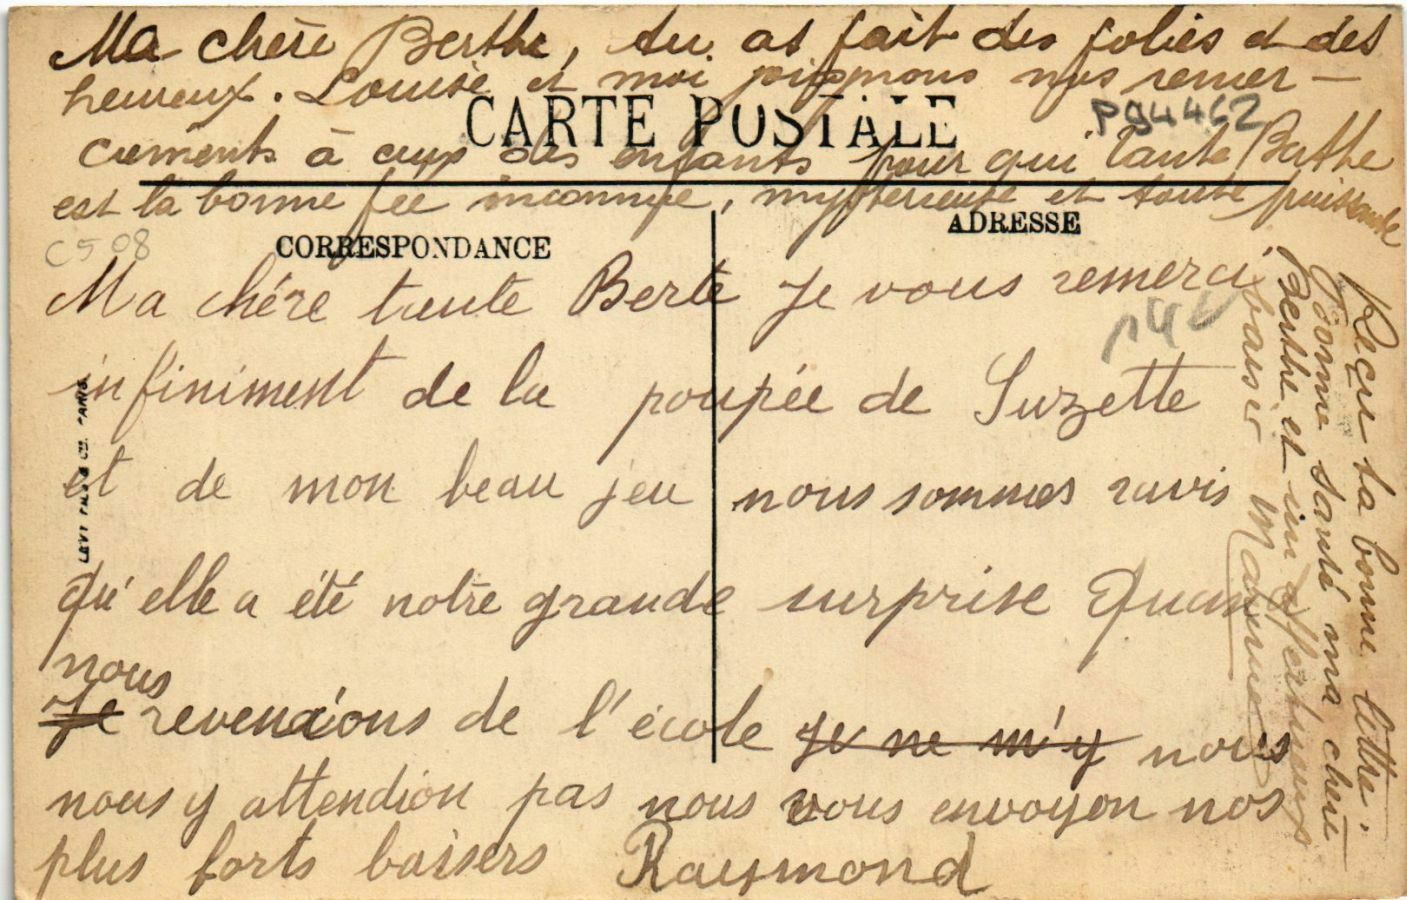 Ma chère Berthe, tu as fait des folies et des
heureux. Louise et moi joignons nos remer-
ciements à ceux des enfants pour qui tante Berthe
est la bonne fée inconnue, mystérieuse et toute puissante
CARTE POSTALE
P94462
C508
CORRESPONDANCE
ADRESSE
Ma chére tante Berte je vous remerci
infiniment de la poupée de Suzette
et de mon beau jeu nous sommes ravis
qu'elle a été notre grande surprise Quand
nous
Je revenaions de l'école je ne m'y nous
nous y attendion pas nous vous envoyon nos
plus forts baisers Raymond
Reçu ta bonne lettre.
Bonne santé ma chère
Berthe et un affectueux
baiser
LEVY FILS & CIE. PARIS